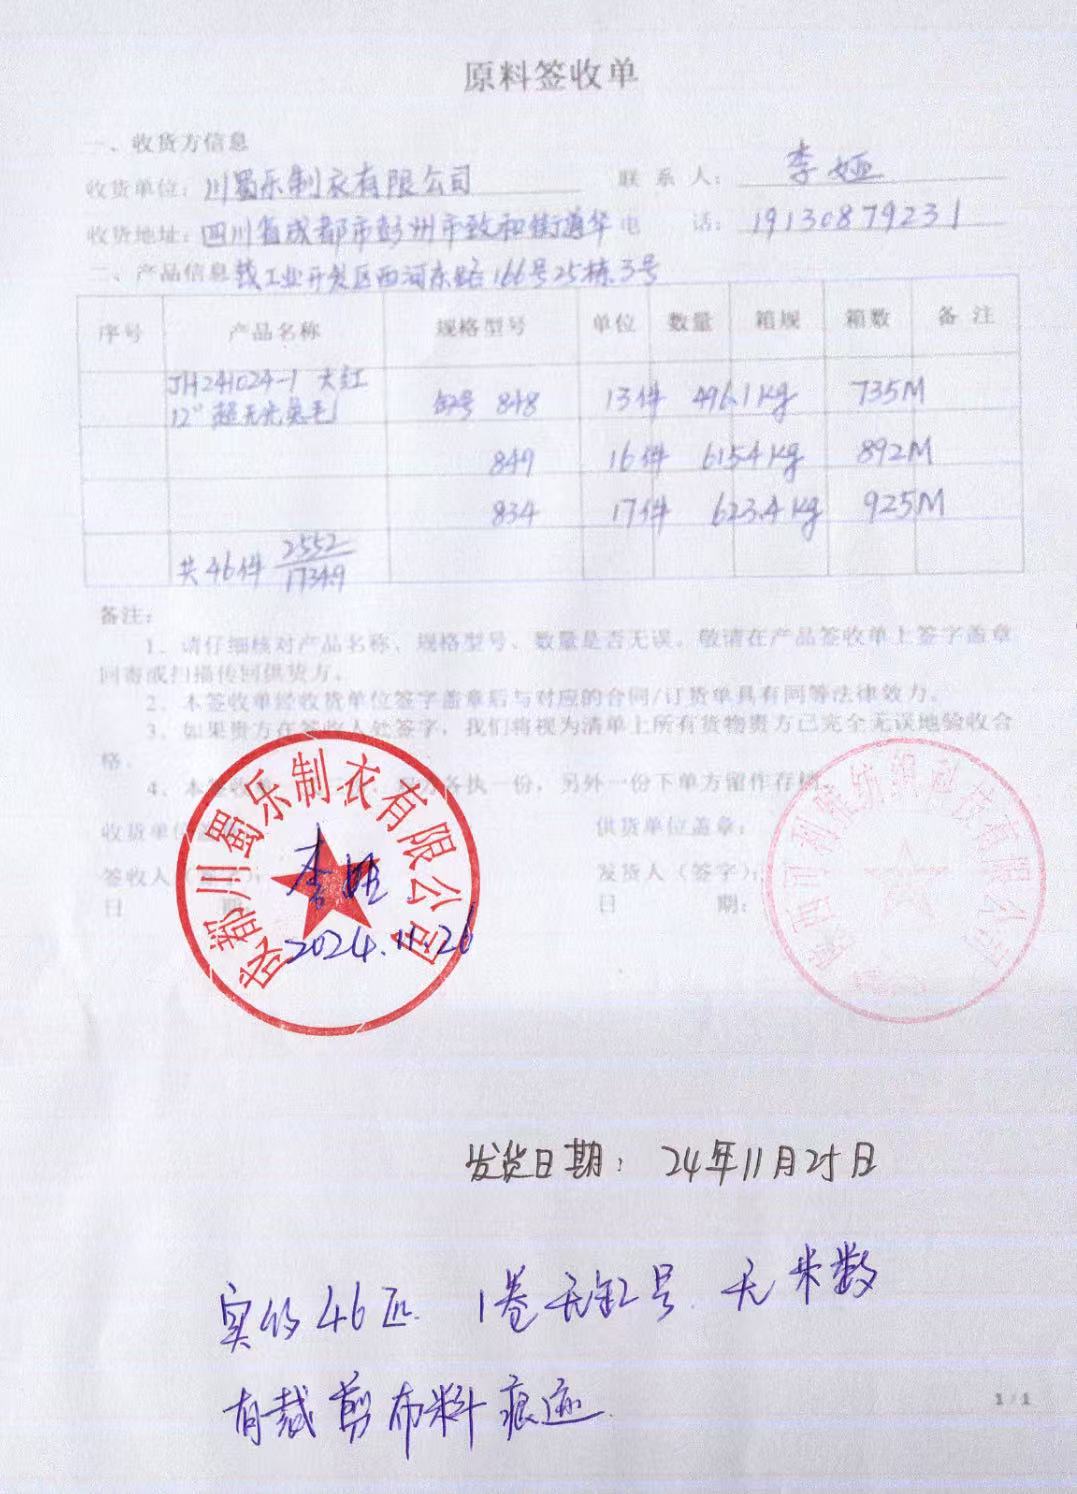 原料签收单
一、收货方信息
收货单位：川蜀乐制衣有限公司 联系人：李娅
收货地址：四川省成都市彭州市致和街道华 电话：19130879231
二、产品信息 线工业开发区西河东路166号25栋3号
序号 产品名称 规格型号 单位 数量 箱规 箱数 备注
JH241024-1 大红
12" 超无光兔毛 缸号 848 13件 496.1kg 735M
849 16件 615.4kg 892M
834 17件 623.4kg 925M
共46件 2552
1734.9
备注：
1、请仔细核对产品名称、规格型号、数量是否无误。敬请在产品签收单上签字盖章
回寄或扫描传回供货方。
2、本签收单经收货单位签字盖章后与对应的合同/订货单具有同等法律效力。
3、如果贵方在签收人处签字，我们将视为清单上所有货物贵方已完全无误地验收合
格。
4、本签收单 各执一份，另外一份下单方留作存档。
收货单位 供货单位盖章：
签收人 李娅 发货人（签字）：
日期 2024.11.26 日 期：
成都川蜀乐制衣有限公司
利雅纺织科技有限公司
发货日期：24年11月25日
实收46匹. 1卷无缸号. 无米数
有裁剪布料痕迹.
1 / 1